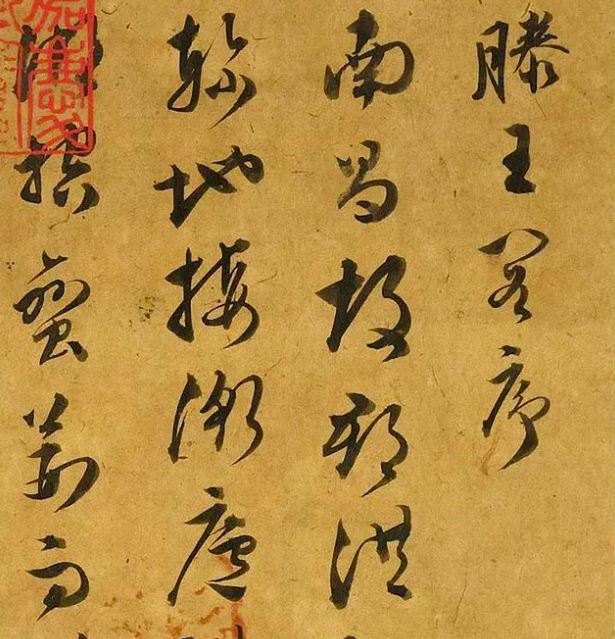 滕王閣序
南昌故郡洪
軫地接衡廬
湖控蠻荊而